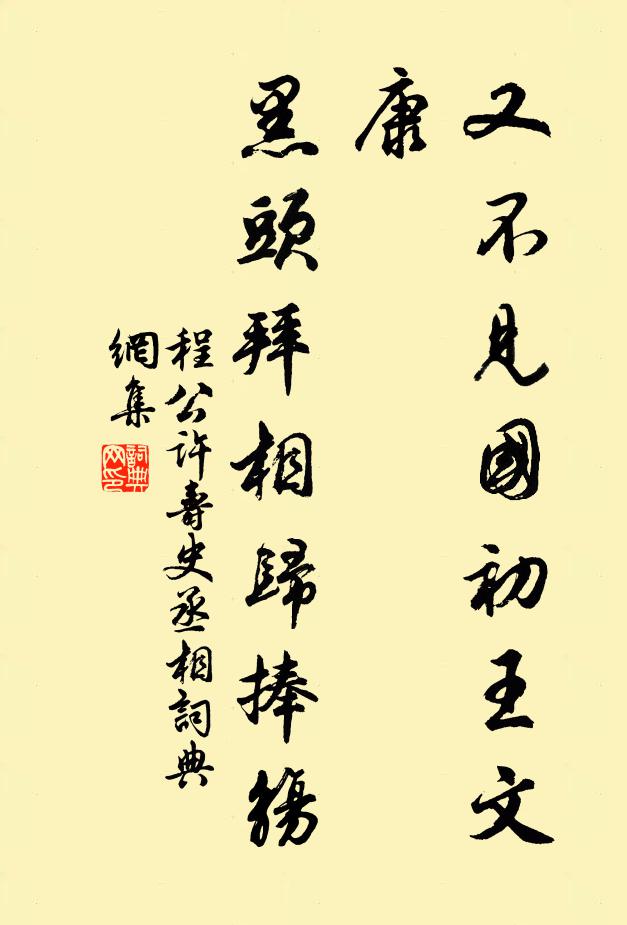 又不見國初王文
康
黑頭拜相歸捧觴
程公許壽史丞相詞典
網集
詞典網印